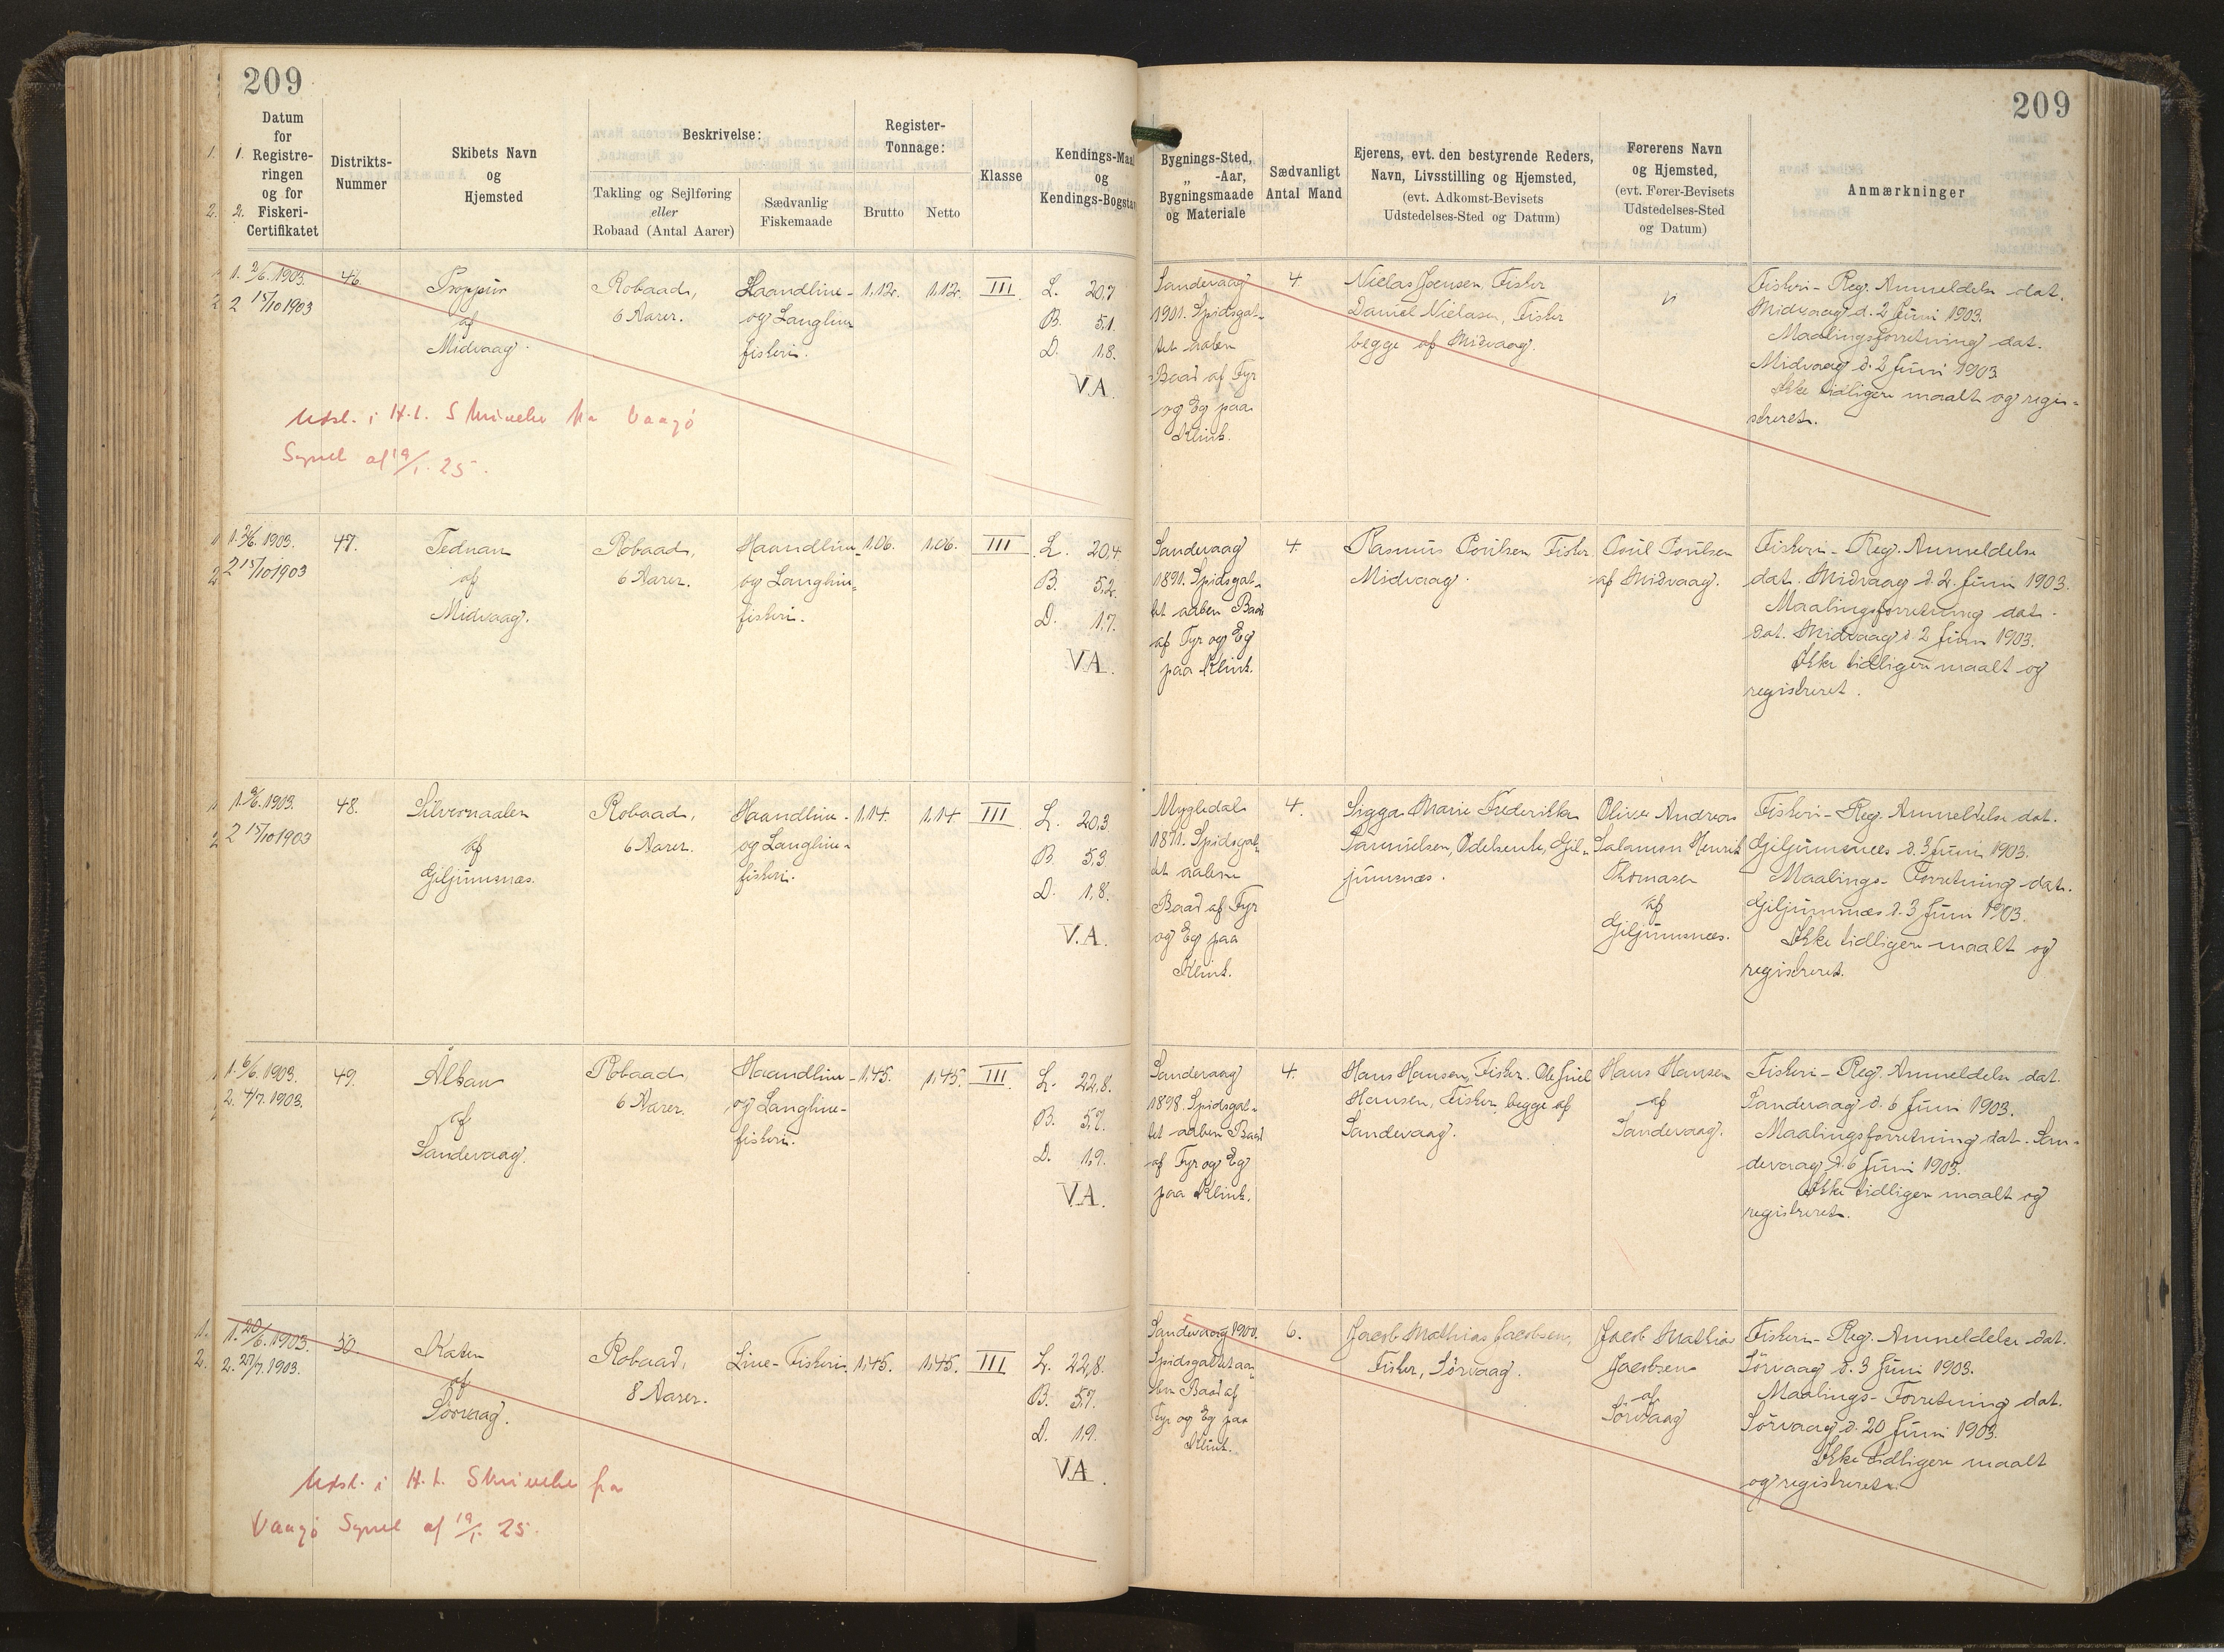 209
209
Datum
for
Registre-
ringen
og for
Fiskeri-
Certifikatet
1.
2.
Distrikts-
Nummer
Skibets Navn
og
Hjemsted
Beskrivelse:
Takling og Sejlføring
eller
Robaad (Antal Aarer)
Sædvanlig
Fiskemaade
Register-
Tonnage:
Brutto
Netto
Klasse
Kendings-Maal
og
Kendings-Bogstav
Bygnings-Sted,
„ -Aar,
Bygningsmaade
og Materiale
Sædvanligt
Antal Mand
Ejerens, evt. den bestyrende Reders,
Navn, Livsstilling og Hjemsted,
(evt. Adkomst-Bevisets
Udstedelses-Sted og Datum)
Førerens Navn
og Hjemsted,
(evt. Fører-Bevisets
Udstedelses-Sted
og Datum)
Anmærkninger
1. 2/6. 1903.
2 15/10 1903
46.
Proppur
af
Midvaag.
Robaad,
6 Aarer.
Haandline-
og Langline
fiskeri.
1,12.
1,12.
III
L. 20,7
B. 5,1
D. 1,8.
V.A.
Sandevaag
1901. Spidsgat-
tet aaben
Baad af Fyr
og Eg paa
Klink.
4.
Nielas Joensen, Fisker
Daniel Nielasen, Fisker
begge af Midvaag.
Fiskeri-Reg. Anmeldelse dat.
Midvaag d. 2 Juni 1903.
Maalingsforretning dat.
Midvaag d. 2 Juni 1903
Ikke tidligere maalt og regi-
streret.
Udsl. i H. t. Skrivelse fra Vaagø
Syssel af 19/1. 25.
1. 2/6. 1903.
2 15/10 1903
47.
Tednan
af
Midvaag.
Robaad,
6 Aarer.
Haandline-
og Langline-
fiskeri.
1,06.
1,06.
III
L. 20,4
B. 5,2.
D. 1,7.
V.A.
Sandevaag
1891. Spidsgat-
tet aaben Baad
af Fyr og Eg
paa Klink.
4.
Rasmus Poulsen, Fisker.
Midvaag.
Poul Poulsen
af Midvaag.
Fiskeri-Reg. Anmeldelse
dat. Midvaag d. 2. Juni 1903.
Maalingsforretning dat.
dat. Midvaag d. 2 Juni 1903.
Ikke tidligere maalt og
registreret.
1. 3/6. 1903.
2 15/10 1903
48.
Silvernaalen
af
Giljumsnæs.
Robaad,
6 Aarer.
Haandline-
og Langline-
fiskeri.
1,14.
1,14
III
L. 20,3
B. 5,3
D. 1,8.
V.A.
Mygledal
1871. Spidsgat-
tet aaben
Baad af Fyr
og Eg paa
Klink.
4.
Sigga Marie Frederikka
Samuelsen, Odelsenke, Gil-
jumsnæs.
Oliver Andreas
Salamon Henrik
Thomasen
af
Giljumsnæs.
Fiskeri-Reg. Anmeldelse dat.
Giljumsnæs d. 3 Juni 1903.
Maalings-Forretning dat.
Giljumsnæs d. 3 Juni 1903.
Ikke tidligere maalt og
registreret.
1. 6/6. 1903.
2. 4/7. 1903.
49.
Alkan
af
Sandevaag.
Robaad
6 Aarer.
Haandline-
og Langline-
fiskeri.
1,45.
1,45.
III
L. 22,8.
B. 5,7.
D. 1,9.
V.A.
Sandevaag
1898. Spidsgat-
tet aaben Baad
af Fyr og Eg
paa Klink.
4.
Hans Hansen, Fisker. Ole Juel
Hansen, Fisker, begge af
Sandevaag.
Hans Hansen
af
Sandevaag.
Fiskeri-Reg. Anmeldelse dat.
Sandevaag d. 6 Juni 1903.
Maalingsforretning dat. San-
devaag d. 6 Juni 1903.
Ikke tidligere maalt og
registreret.
1. 20/6. 1903.
2. 27/7. 1903.
50
Katen
af
Sörvaag.
Robaad,
8 Aarer.
Line-Fiskeri.
1,45.
1,45.
III
L. 22,8.
B. 5,7.
D. 1,9.
V.A.
Sandevaag 1900.
Spidsgattet aa-
ben Baad af
Fyr og Eg paa
Klink.
6.
Jacob Mathias Jacobsen,
Fisker, Sörvaag.
Jacob Mathias
Jacobsen
af
Sörvaag
Fiskeri-Reg. Anmeldelse dat.
Sörvaag d. 3 Juni 1903.
Maalings-Forretning dat.
Sörvaag d. 20 Juni 1903.
Ikke tidligere maalt
og registreret.
Udsl. i H. t. Skrivelse fra
Vaagø Syssel af 19/1. 25.